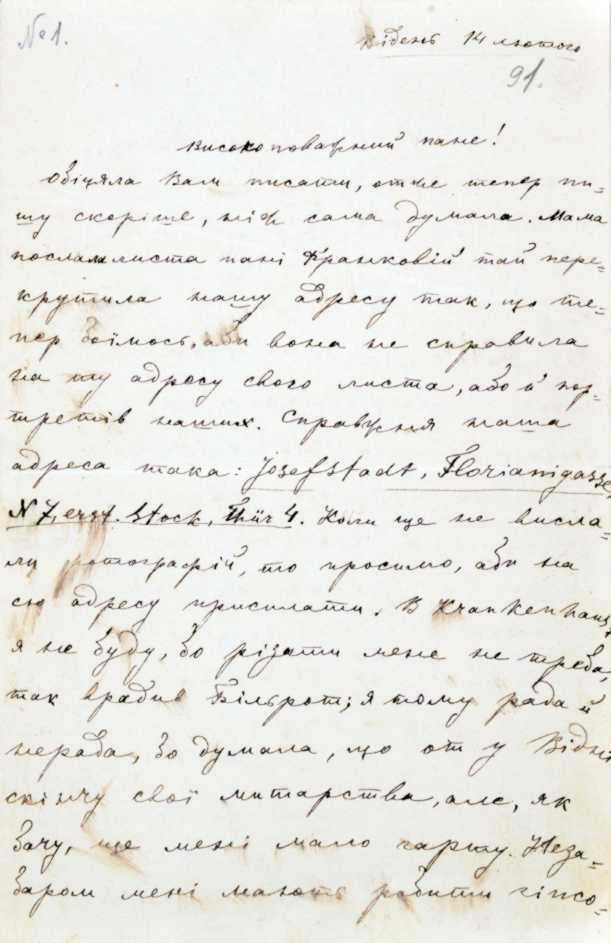 № 1.
Відень 14 лютого
91.
Високоповажний пане!
Обіцяла Вам писати, отже тепер пи=
шу скоріше, ніж сама думала. Мама
послала листа пані Франковій тай пере=
крутила нашу адресу так, що те=
пер боїмось, аби вона не справила
на ту адресу свого листа, або й пор=
третів наших. Справжня наша
адреса така: Josefstadt, Florianigasse
N 7, erst. Stock, Thür 4. Коли ще не висла=
ли фотографій, то просимо, аби на
сю адресу присилати. В Krankenhaus,
я не буду, бо різати мене не треба,
так врадив Більрот; я тому рада й
нерада, бо думала, що от у Відні
скінчу свої митарства, але, як
бачу, ще мені мало гарту. Неза=
баром мені мають робити гіпсо=